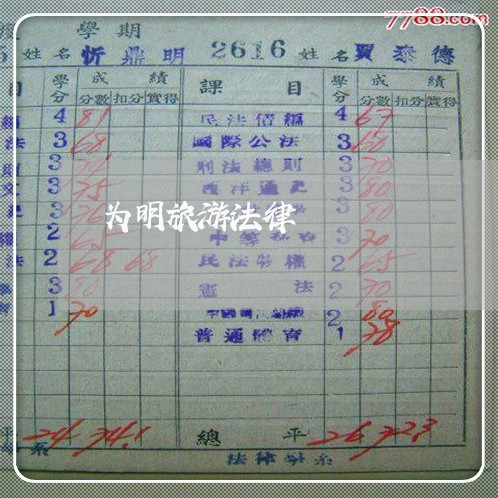 7788.com
學期
姓名 忻鼎明 2616 姓名 賈泰德
目 學分 成績 課目 學分 成績
分數 扣分 實得 分數 扣分 實得
4 81 民法債編 4 67
法 3 68 國際公法 3 60
則 3 刑法總則 3 70
文 3 75 西洋通史 3 80
史 3 76 3 80
為明旅游法律
權 2 65 3 70
法 2 68 68 民法物權 2 65
3 80 憲法 2 70
育 1 70 2 80
普通體育 1 78
平 24 74.1 總平 26 72.3
系 法律學系